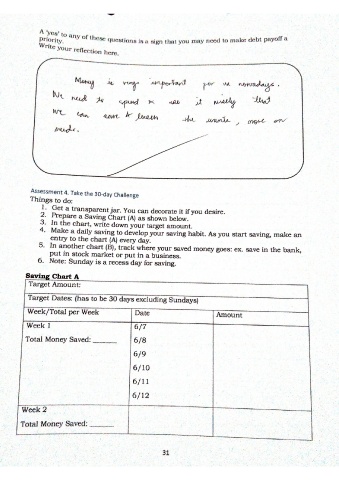 A 'yes' to any of these questions is a sign that you may need to make debt payoff a
priority.
Write your reflection here.
Money is very important for us nowadays.
We need to spend or use it wisely that
we can save to lessen the wants, more on
needs.
Assessment 4. Take the 30-day Challenge
Things to do:
1. Get a transparent jar. You can decorate it if you desire.
2. Prepare a Saving Chart (A) as shown below.
3. In the chart, write down your target amount.
4. Make a daily saving to develop your saving habit. As you start saving, make an
entry to the chart (A) every day.
5. In another chart (B), track where your saved money goes: ex. save in the bank,
put in stock market or put in a business.
6. Note: Sunday is a recess day for saving.
Saving Chart A
Target Amount:
Target Dates: (has to be 30 days excluding Sundays)
Week/Total per Week Date Amount
Week 1 6/7
Total Money Saved: ______ 6/8
6/9
6/10
6/11
6/12
Week 2
Total Money Saved: ______
31